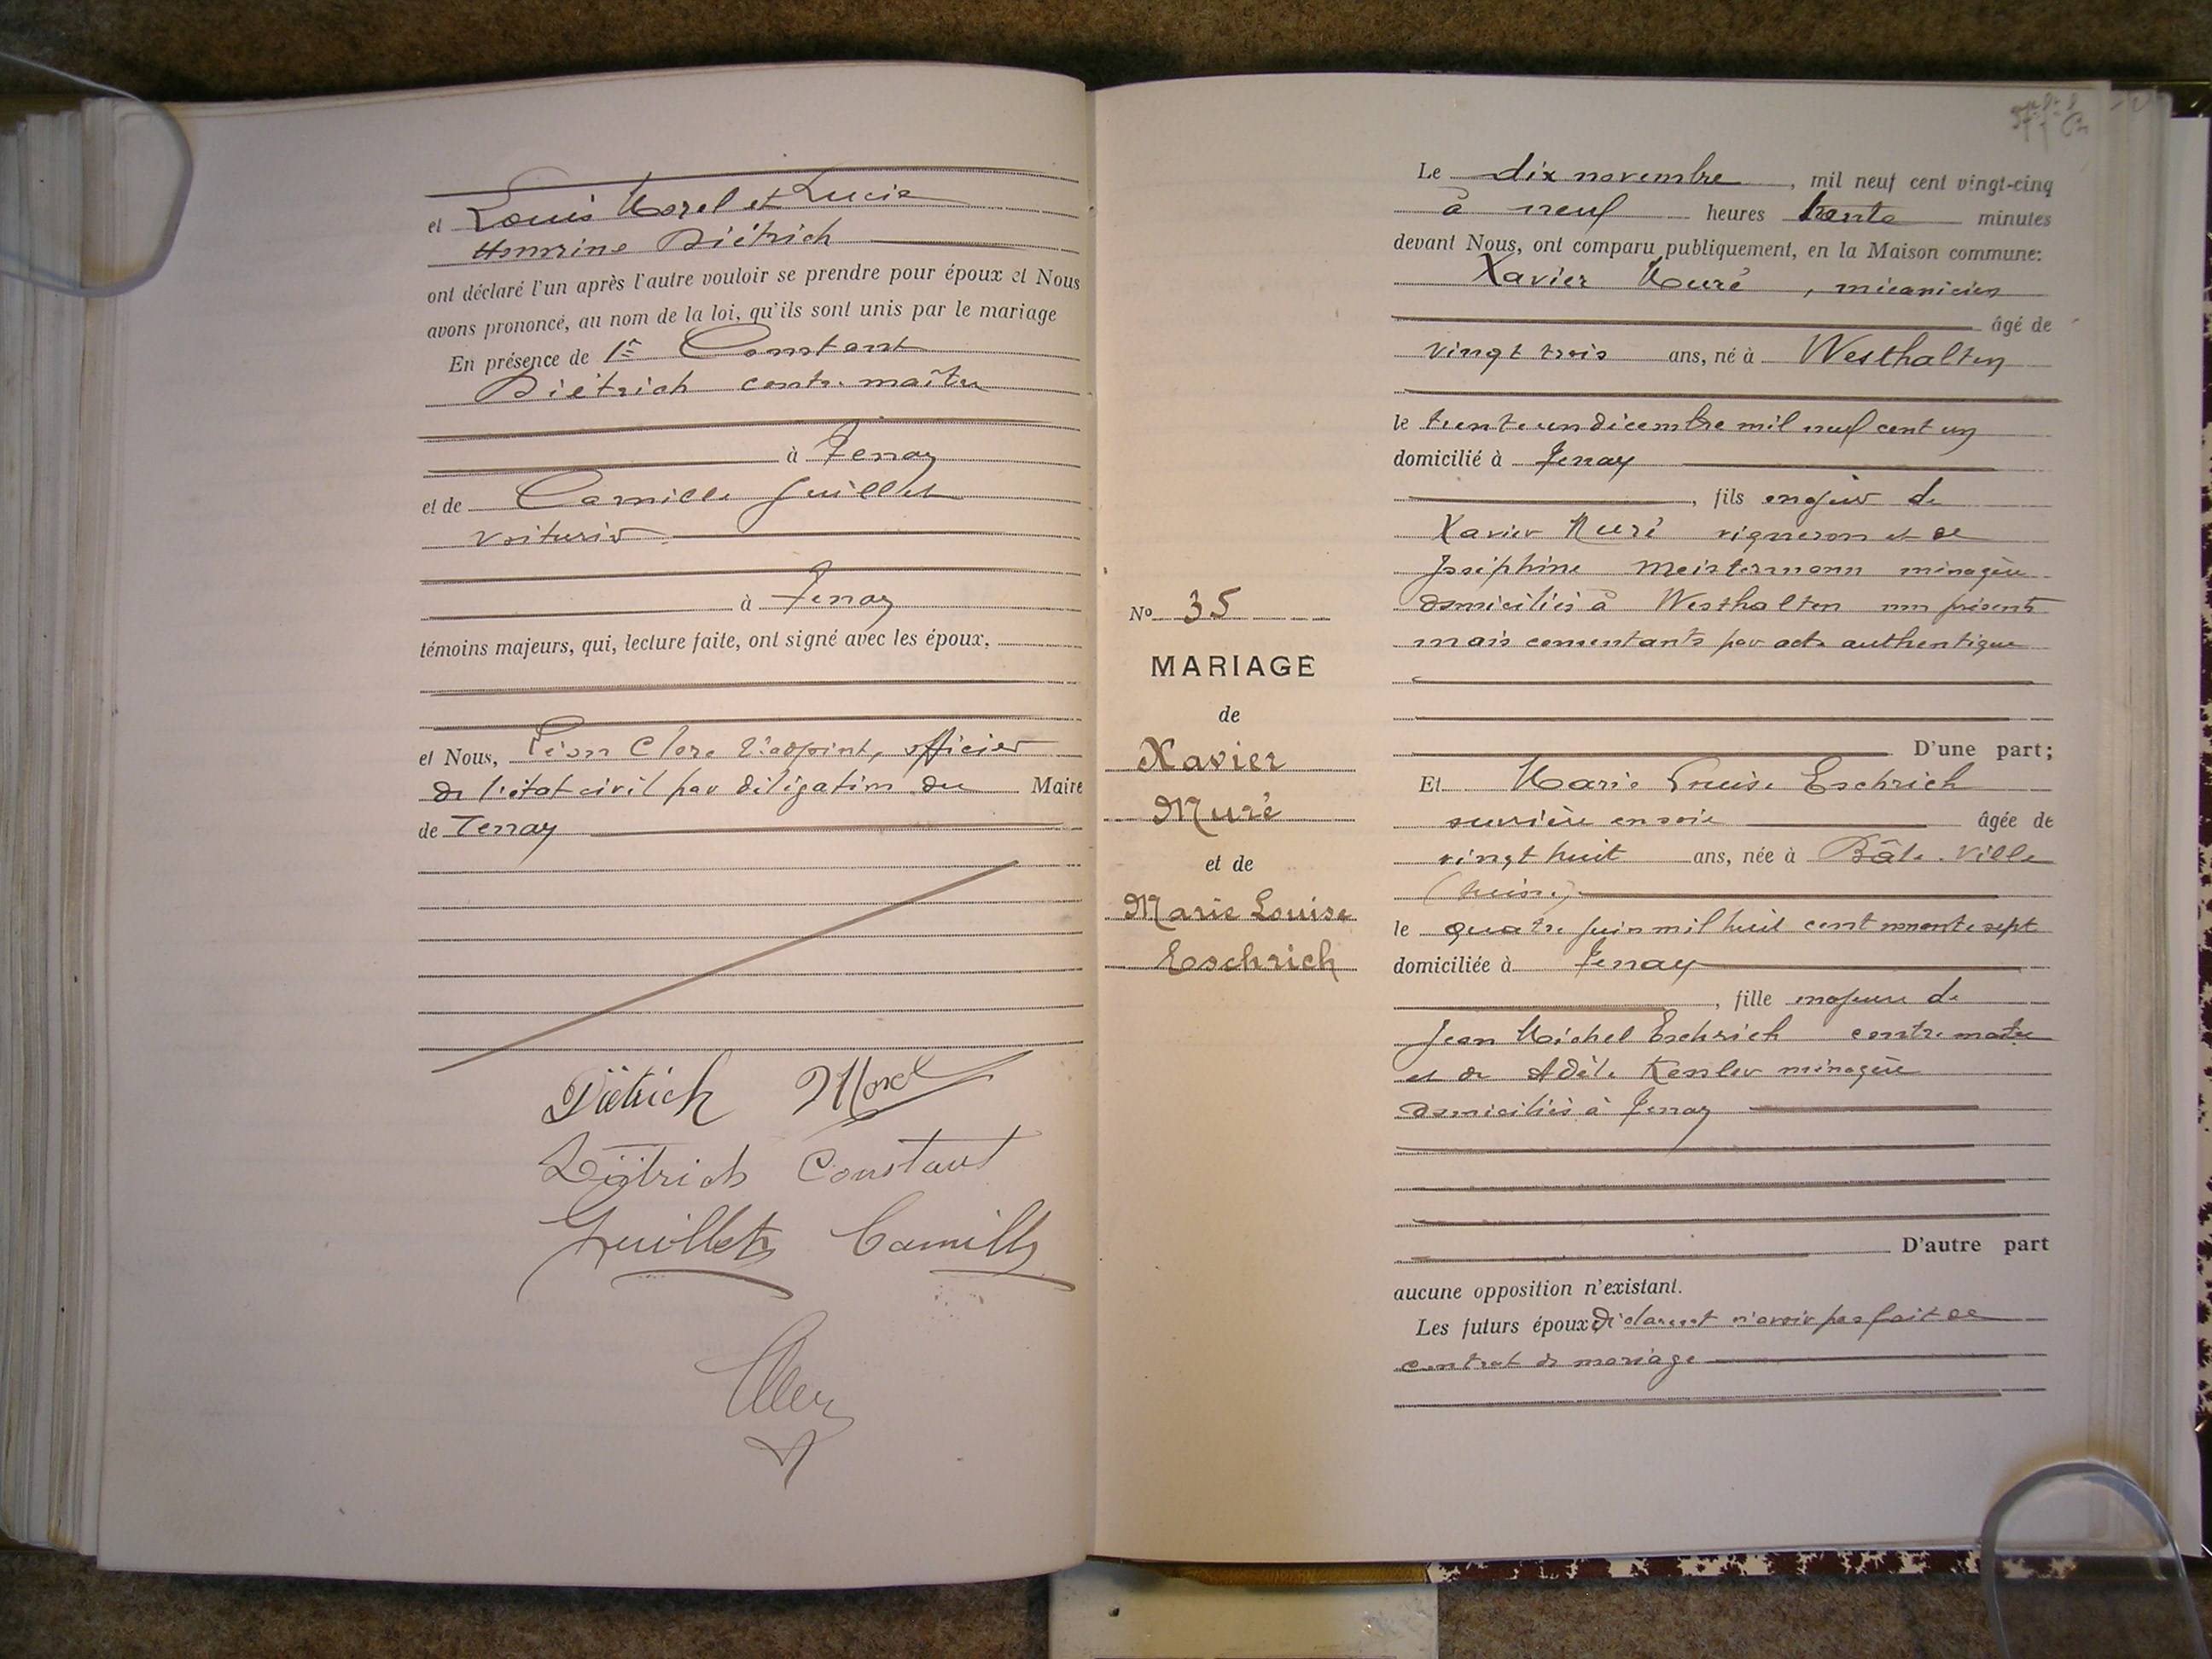 et Louis Morel et Lucie
Honorine Diétrich
ont déclaré l'un après l'autre vouloir se prendre pour époux et Nous
avons prononcé, au nom de la loi, qu'ils sont unis par le mariage
En présence de 1º Constant
Diétrich contre maître
à Tenay
et de Camille Guillet
voiturier
à Tenay
témoins majeurs, qui, lecture faite, ont signé avec les époux,
et Nous, Léon Clerc l'adjoint, officier
de l'état civil par délégation du Maire
de Tenay
Diétrich Morel
Diétrich Constant
Guillet Camille
Clerc
Nº 35
MARIAGE
de
Xavier
Muré
et de
Marie Louise
Eschrich
Le dix novembre, mil neuf cent vingt-cinq
à neuf heures trente minutes
devant Nous, ont comparu publiquement, en la Maison commune:
Xavier Muré, mécanicien
âgé de
vingt trois ans, né à Westhalten
le trente un décembre mil neuf cent un
domicilié à Tenay
, fils majeur de
Xavier Muré vigneron et de
Joséphine Meistermann ménagère
domiciliés à Westhalten non présents
mais consentants par acte authentique
D'une part;
Et Marie Louise Eschrich
ouvrière en soie âgée de
vingt huit ans, née à Bâle-Ville
(Suisse)
le quatre juin mil huit cent nonante sept
domiciliée à Tenay
, fille majeure de
Jean Michel Eschrich contre maître
et de Adèle Kenler ménagère
domiciliés à Tenay
D'autre part
aucune opposition n'existant.
Les futurs époux déclarent n'avoir pas fait de
contrat de mariage